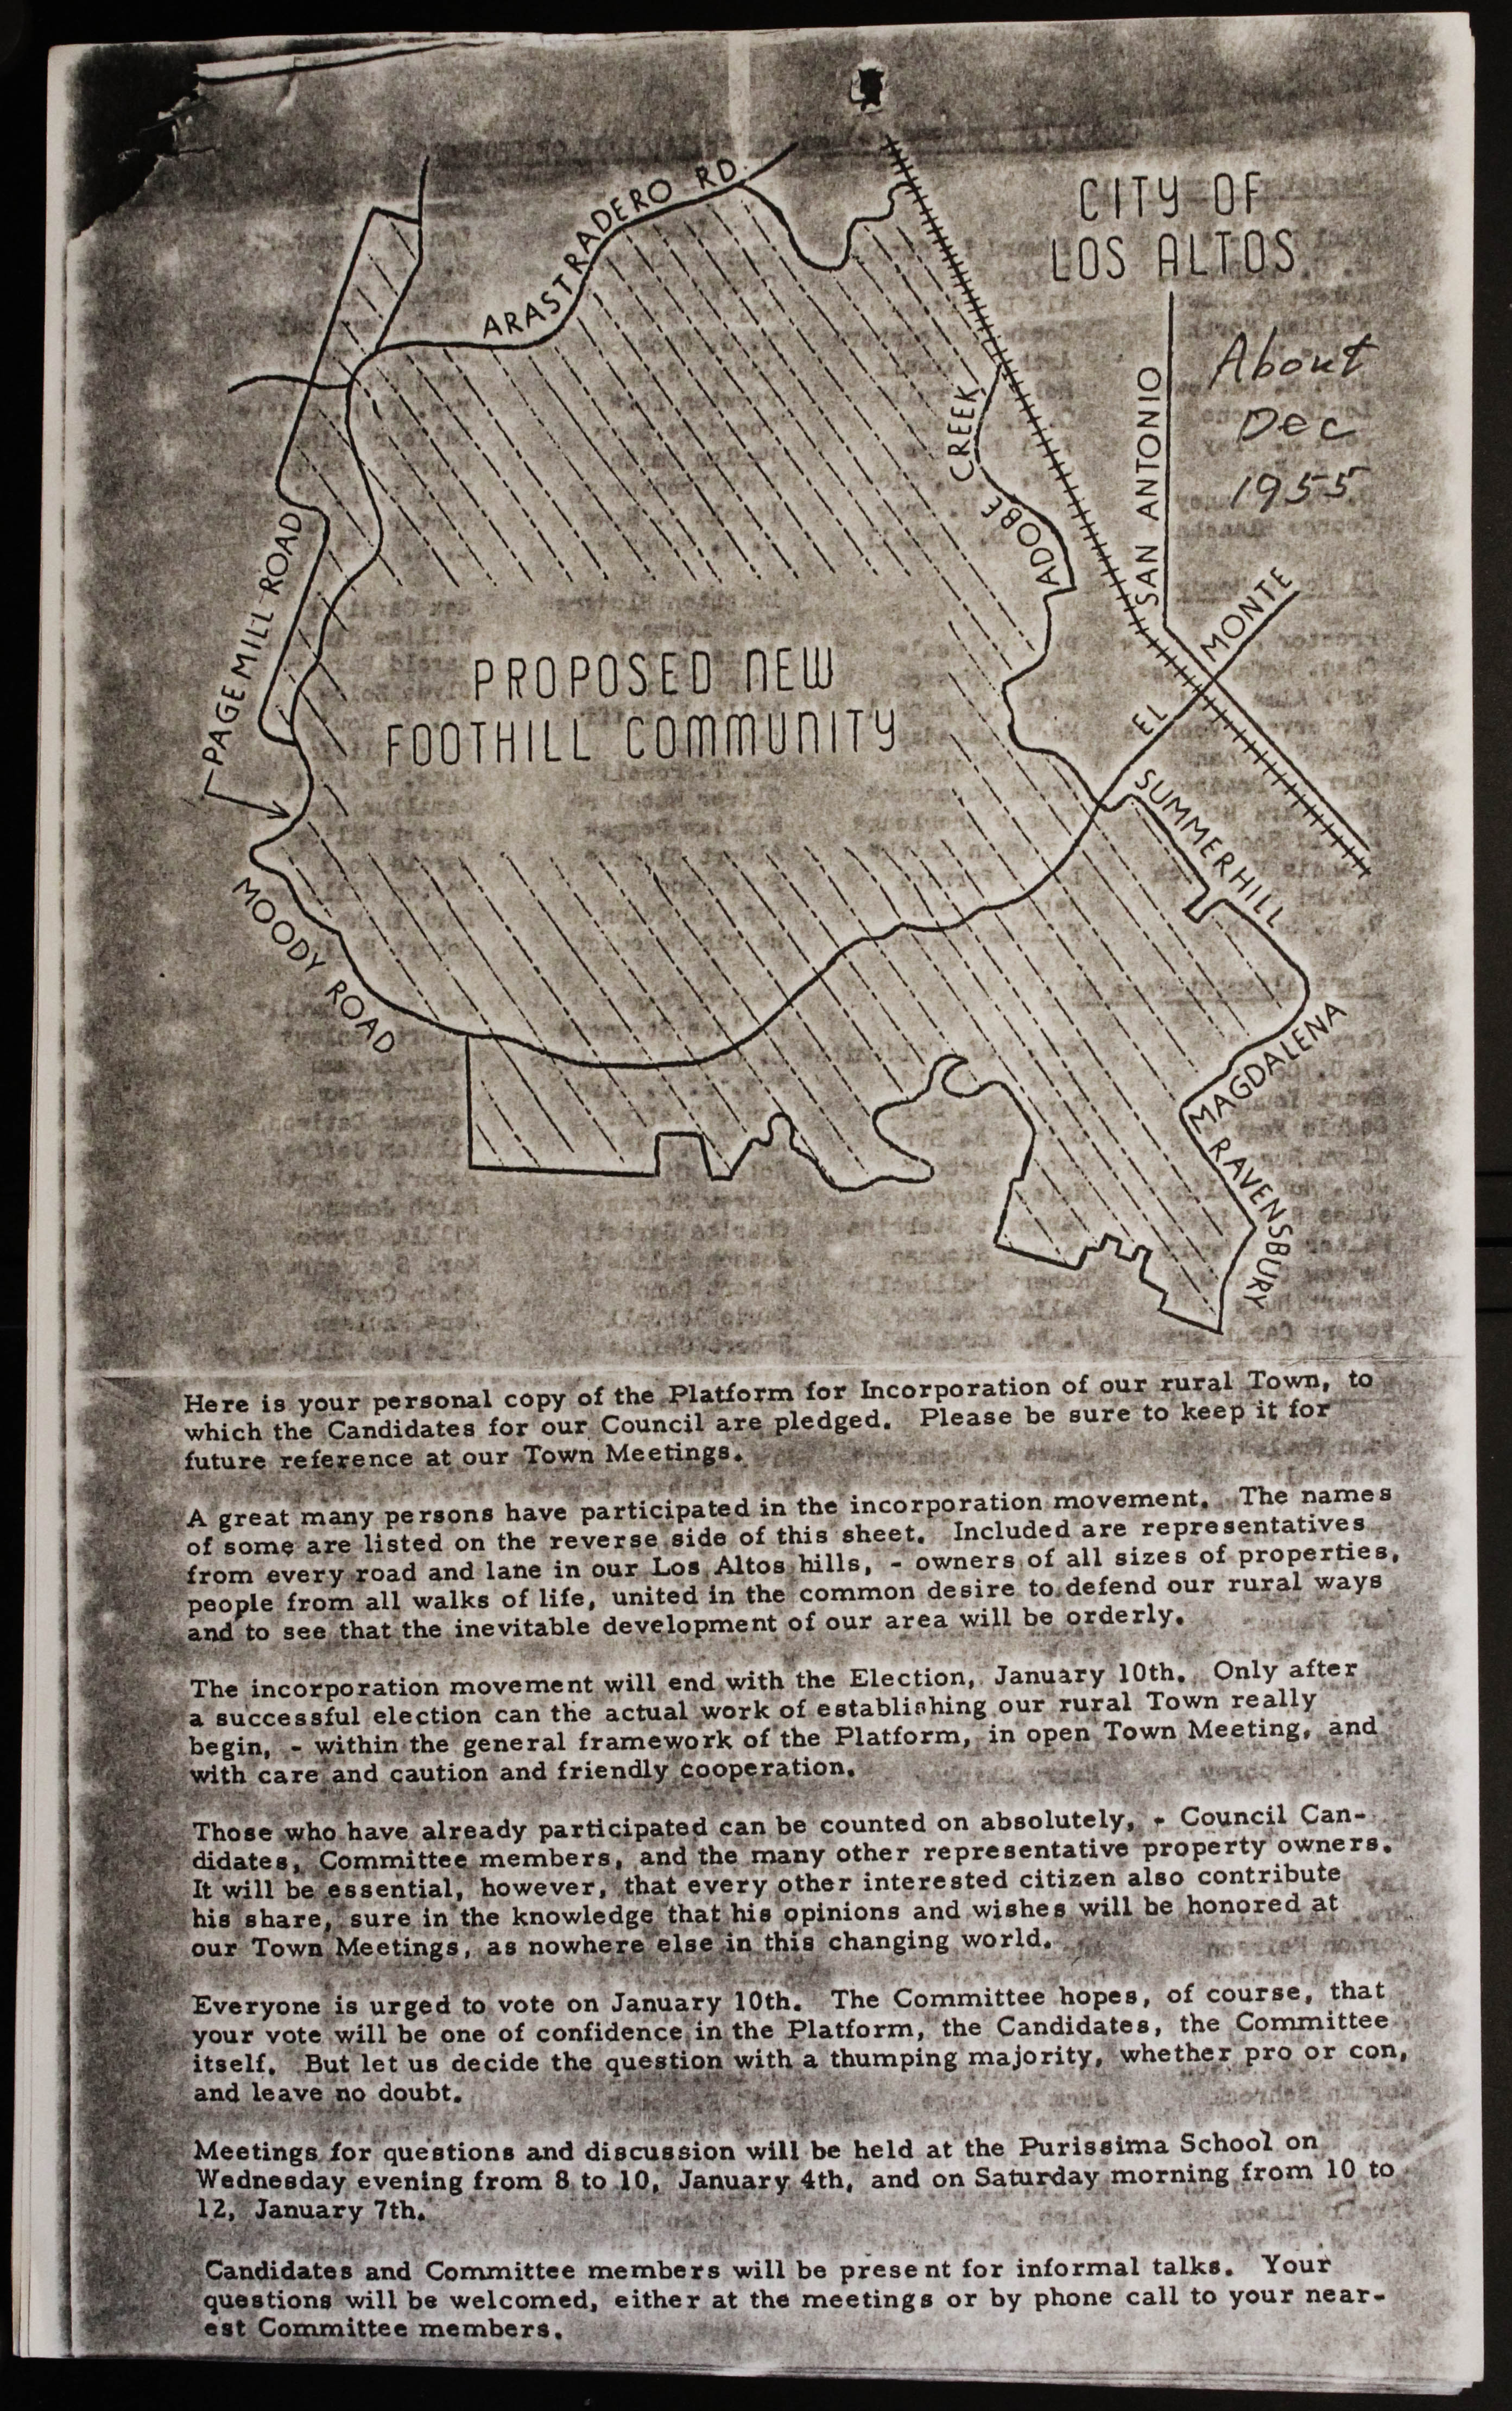 CITY OF
LOS ALTOS
About
Dec
1955
ARASTRADERO RD.
ADOBE CREEK
SAN ANTONIO
EL MONTE
PAGE MILL ROAD
PROPOSED NEW
FOOTHILL COMMUNITY
SUMMERHILL
MOODY ROAD
MAGDALENA
RAVENSBURY
Here is your personal copy of the Platform for Incorporation of our rural Town, to
which the Candidates for our Council are pledged. Please be sure to keep it for
future reference at our Town Meetings.
A great many persons have participated in the incorporation movement. The names
of some are listed on the reverse side of this sheet. Included are representatives
from every road and lane in our Los Altos hills, - owners of all sizes of properties,
people from all walks of life, united in the common desire to defend our rural ways
and to see that the inevitable development of our area will be orderly.
The incorporation movement will end with the Election, January 10th. Only after
a successful election can the actual work of establishing our rural Town really
begin, - within the general framework of the Platform, in open Town Meeting, and
with care and caution and friendly cooperation.
Those who have already participated can be counted on absolutely, - Council Can-
didates, Committee members, and the many other representative property owners.
It will be essential, however, that every other interested citizen also contribute
his share, sure in the knowledge that his opinions and wishes will be honored at
our Town Meetings, as nowhere else in this changing world.
Everyone is urged to vote on January 10th. The Committee hopes, of course, that
your vote will be one of confidence in the Platform, the Candidates, the Committee
itself. But let us decide the question with a thumping majority, whether pro or con,
and leave no doubt.
Meetings for questions and discussion will be held at the Purissima School on
Wednesday evening from 8 to 10, January 4th, and on Saturday morning from 10 to
12, January 7th.
Candidates and Committee members will be present for informal talks. Your
questions will be welcomed, either at the meetings or by phone call to your near-
est Committee members.